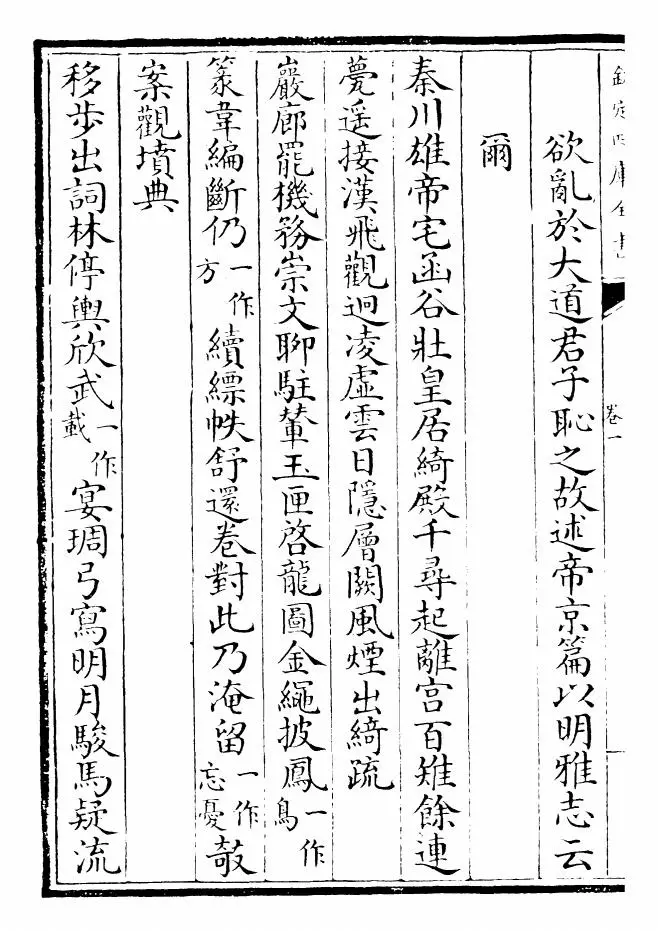 欽定四庫全書
卷一
欲亂於大道君子恥之故述帝京篇以明雅志云
爾
秦川雄帝宅函谷壯皇居綺殿千尋起離宮百雉餘連
甍遥接漢飛觀迥凌虛雲日隱層闕風煙出綺疏
巖廊罷機務崇文聊駐輦玉匣啓龍圖金繩披鳳一作鳥
篆韋編斷仍一作方續縹帙舒還卷對此乃淹留一作忘憂敧
案觀墳典
移步出詞林停輿欣武一作戢宴琱弓寫明月駿馬疑流